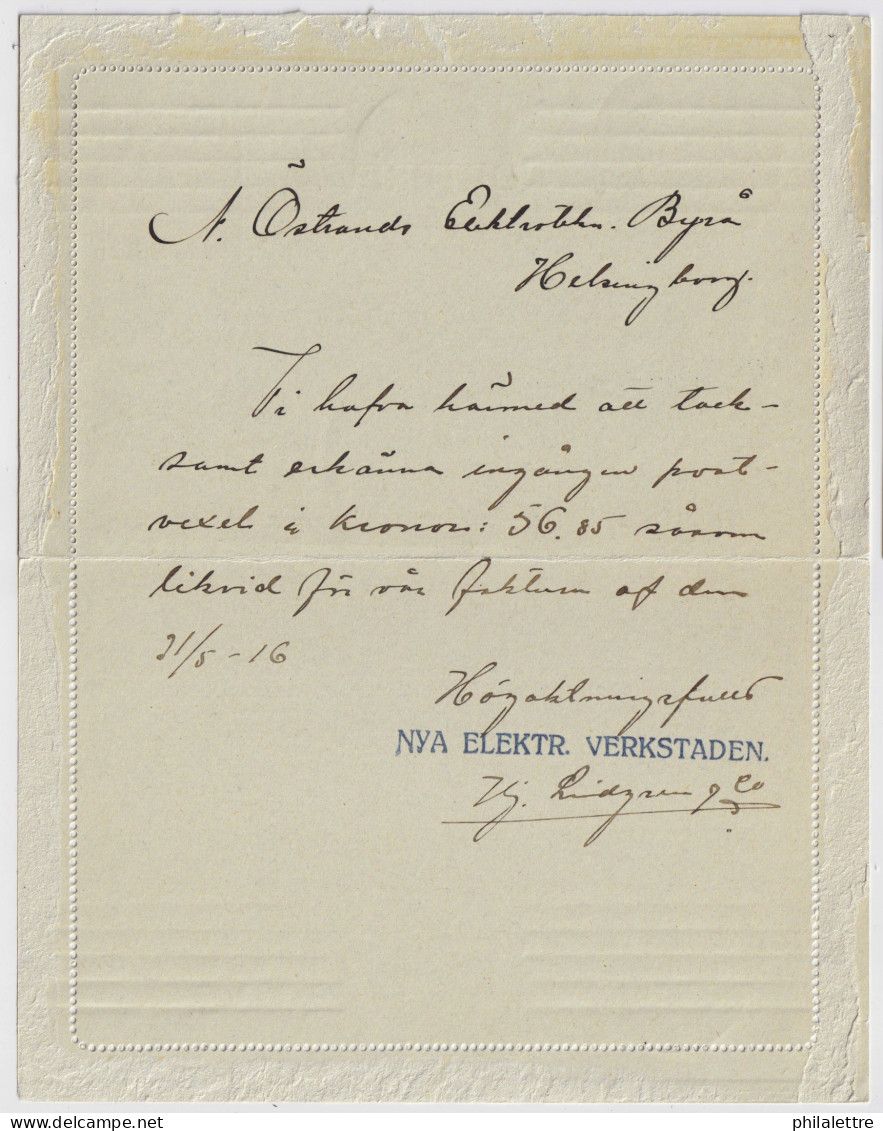 N. Östrands Elektrotekn. Byrå
Helsingborg.
Vi hafva härmed att tack-
samt erkänna ingången post-
vexel å Kronor: 56.85 såsom
likvid för vår faktura af den
31/5 - 16
Högaktningsfullt
NYA ELEKTR. VERKSTADEN.
Hj. Lindgren & Co
philalettre